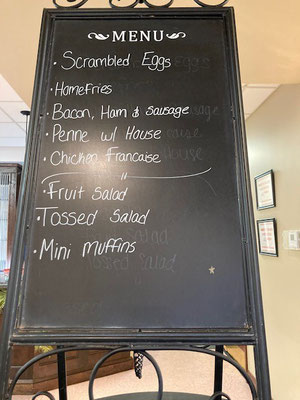 MENU
• Scrambled Eggs
• Homefries
• Bacon, Ham & Sausage
• Penne w/ House
• Chicken Francaise
• Fruit Salad
• Tossed Salad
• Mini Muffins